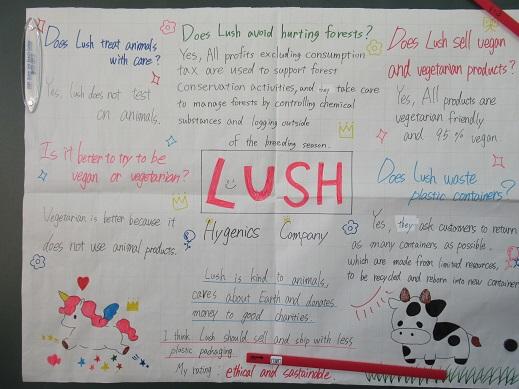 Does Lush treat animals
with care?
Yes, Lush does not test
on animals.
Does Lush avoid hurting forests?
Yes, All profits excluding consumption
tax are used to support forest
conservation activities, and they take care
to manage forests by controlling chemical
substances and logging outside
of the breeding season.
Does Lush sell vegan
and vegetarian products?
Yes, All products are
vegetarian friendly
and 95% vegan.
Is it better to try to be
vegan or vegetarian?
Vegetarian is better because it
does not use animal products.
LUSH
Hygenics Company
Lush is kind to animals,
cares about Earth and donates
money to good charities.
I think Lush should sell and ship with less
plastic packaging.
My rating: ethical and sastainable.
Does Lush waste
plastic containers?
Yes, they ask customers to return
as many containers as possible.
which are made from limited resources,
to be recycled and reborn into new container